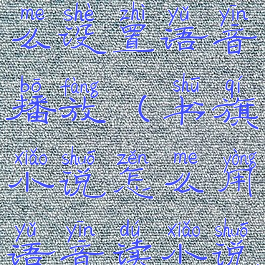 me shè zhì yǔ yīn
么设置语音
bō fàng shū qí
播放（书旗
xiǎo shuō zěn me yòng
小说怎么用
yǔ yīn dú xiǎo shuō
语音读小说